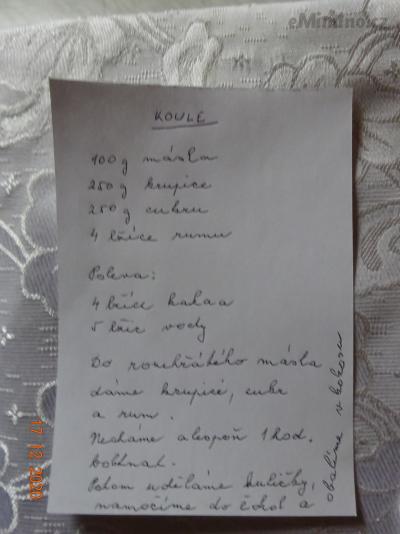 eMimino.cz
KOULE
100 g másla
250 g krupice
250 g cukru
4 lžíce rumu
Poleva:
4 lžíce kakaa
5 lžic vody
Do rozehřátého másla
dáme krupici, cukr
a rum.
Necháme alespoň 1 hod.
bobtnat.
Potom uděláme kuličky,
namočíme do čokol a
obalíme v kokosu
17 12 2020